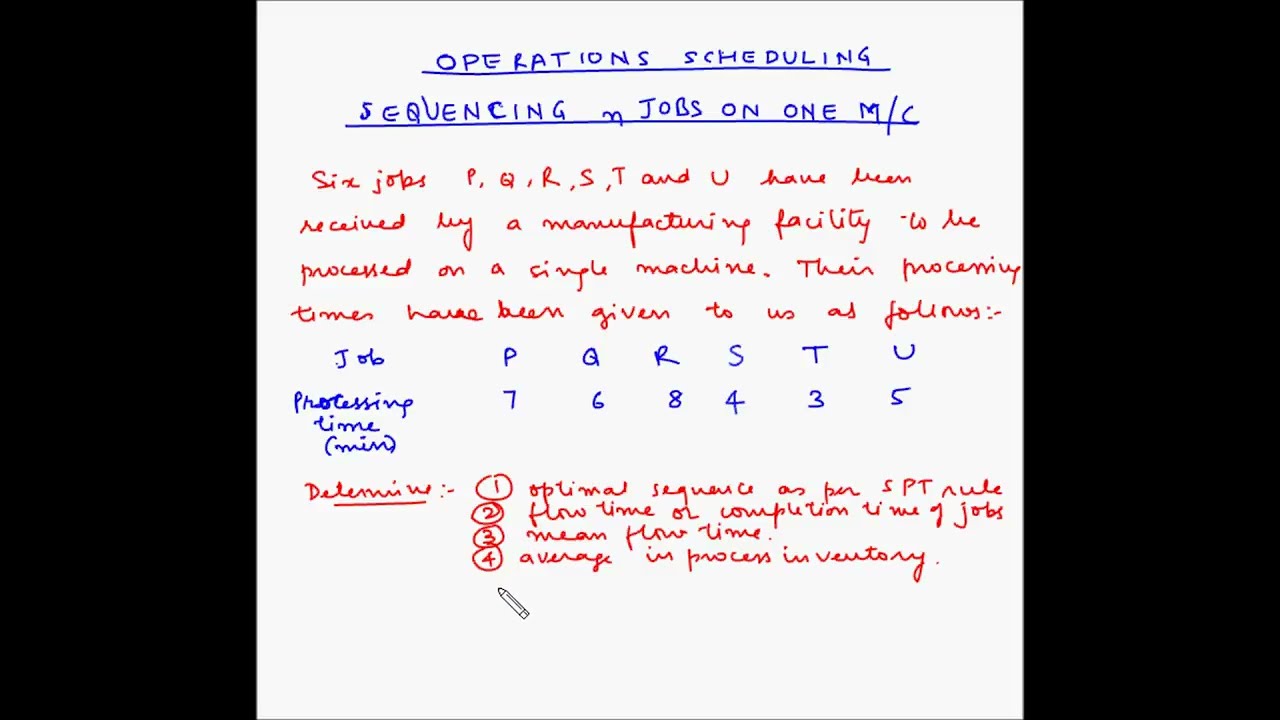 OPERATIONS SCHEDULING
SEQUENCING n JOBS ON ONE M/C
Six jobs P, Q, R, S, T and U have been
received by a manufacturing facility to be
processed on a single machine. Their processing
times have been given to us as follows:-
Job P Q R S T U
Processing 7 6 8 4 3 5
time
(min)
Determine:- ① optimal sequence as per SPT rule
② flow time or completion time of jobs
③ mean flow time.
④ average in process inventory.